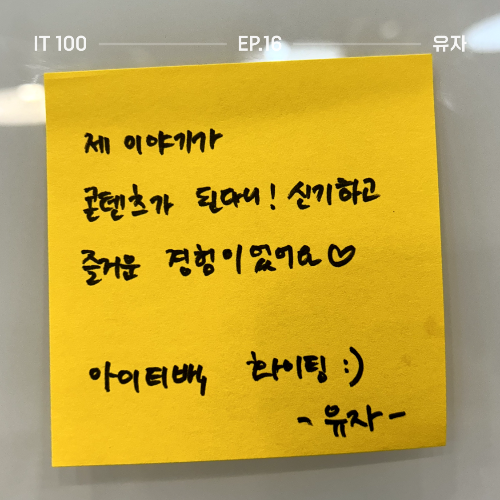 IT 100 EP.16 유자
제 이야기가
콘텐츠가 된다니! 신기하고
즐거운 경험이었어요♡
아이티백, 화이팅 :)
- 유자 -